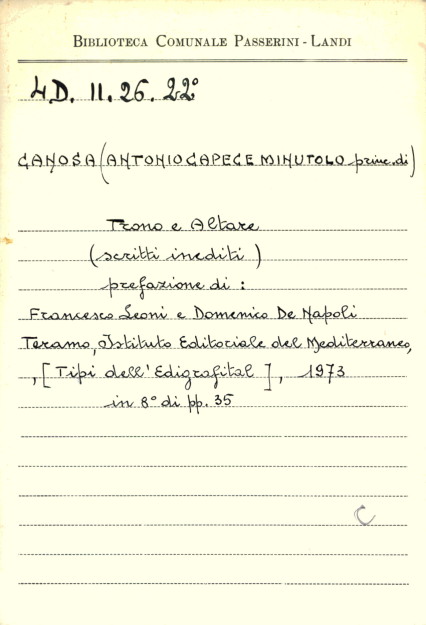 BIBLIOTECA COMUNALE PASSERINI - LANDI
4D. II. 26. 22°
CANOSA (ANTONIO CAPECE MINUTOLO princ. di)
Trono e Altare
(scritti inediti)
prefazione di :
Francesco Leoni e Domenico De Napoli
Teramo, Istituto Editoriale del Mediterraneo,
, [Tipi dell'Edigrafital], 1973
in 8° di pp. 35
C